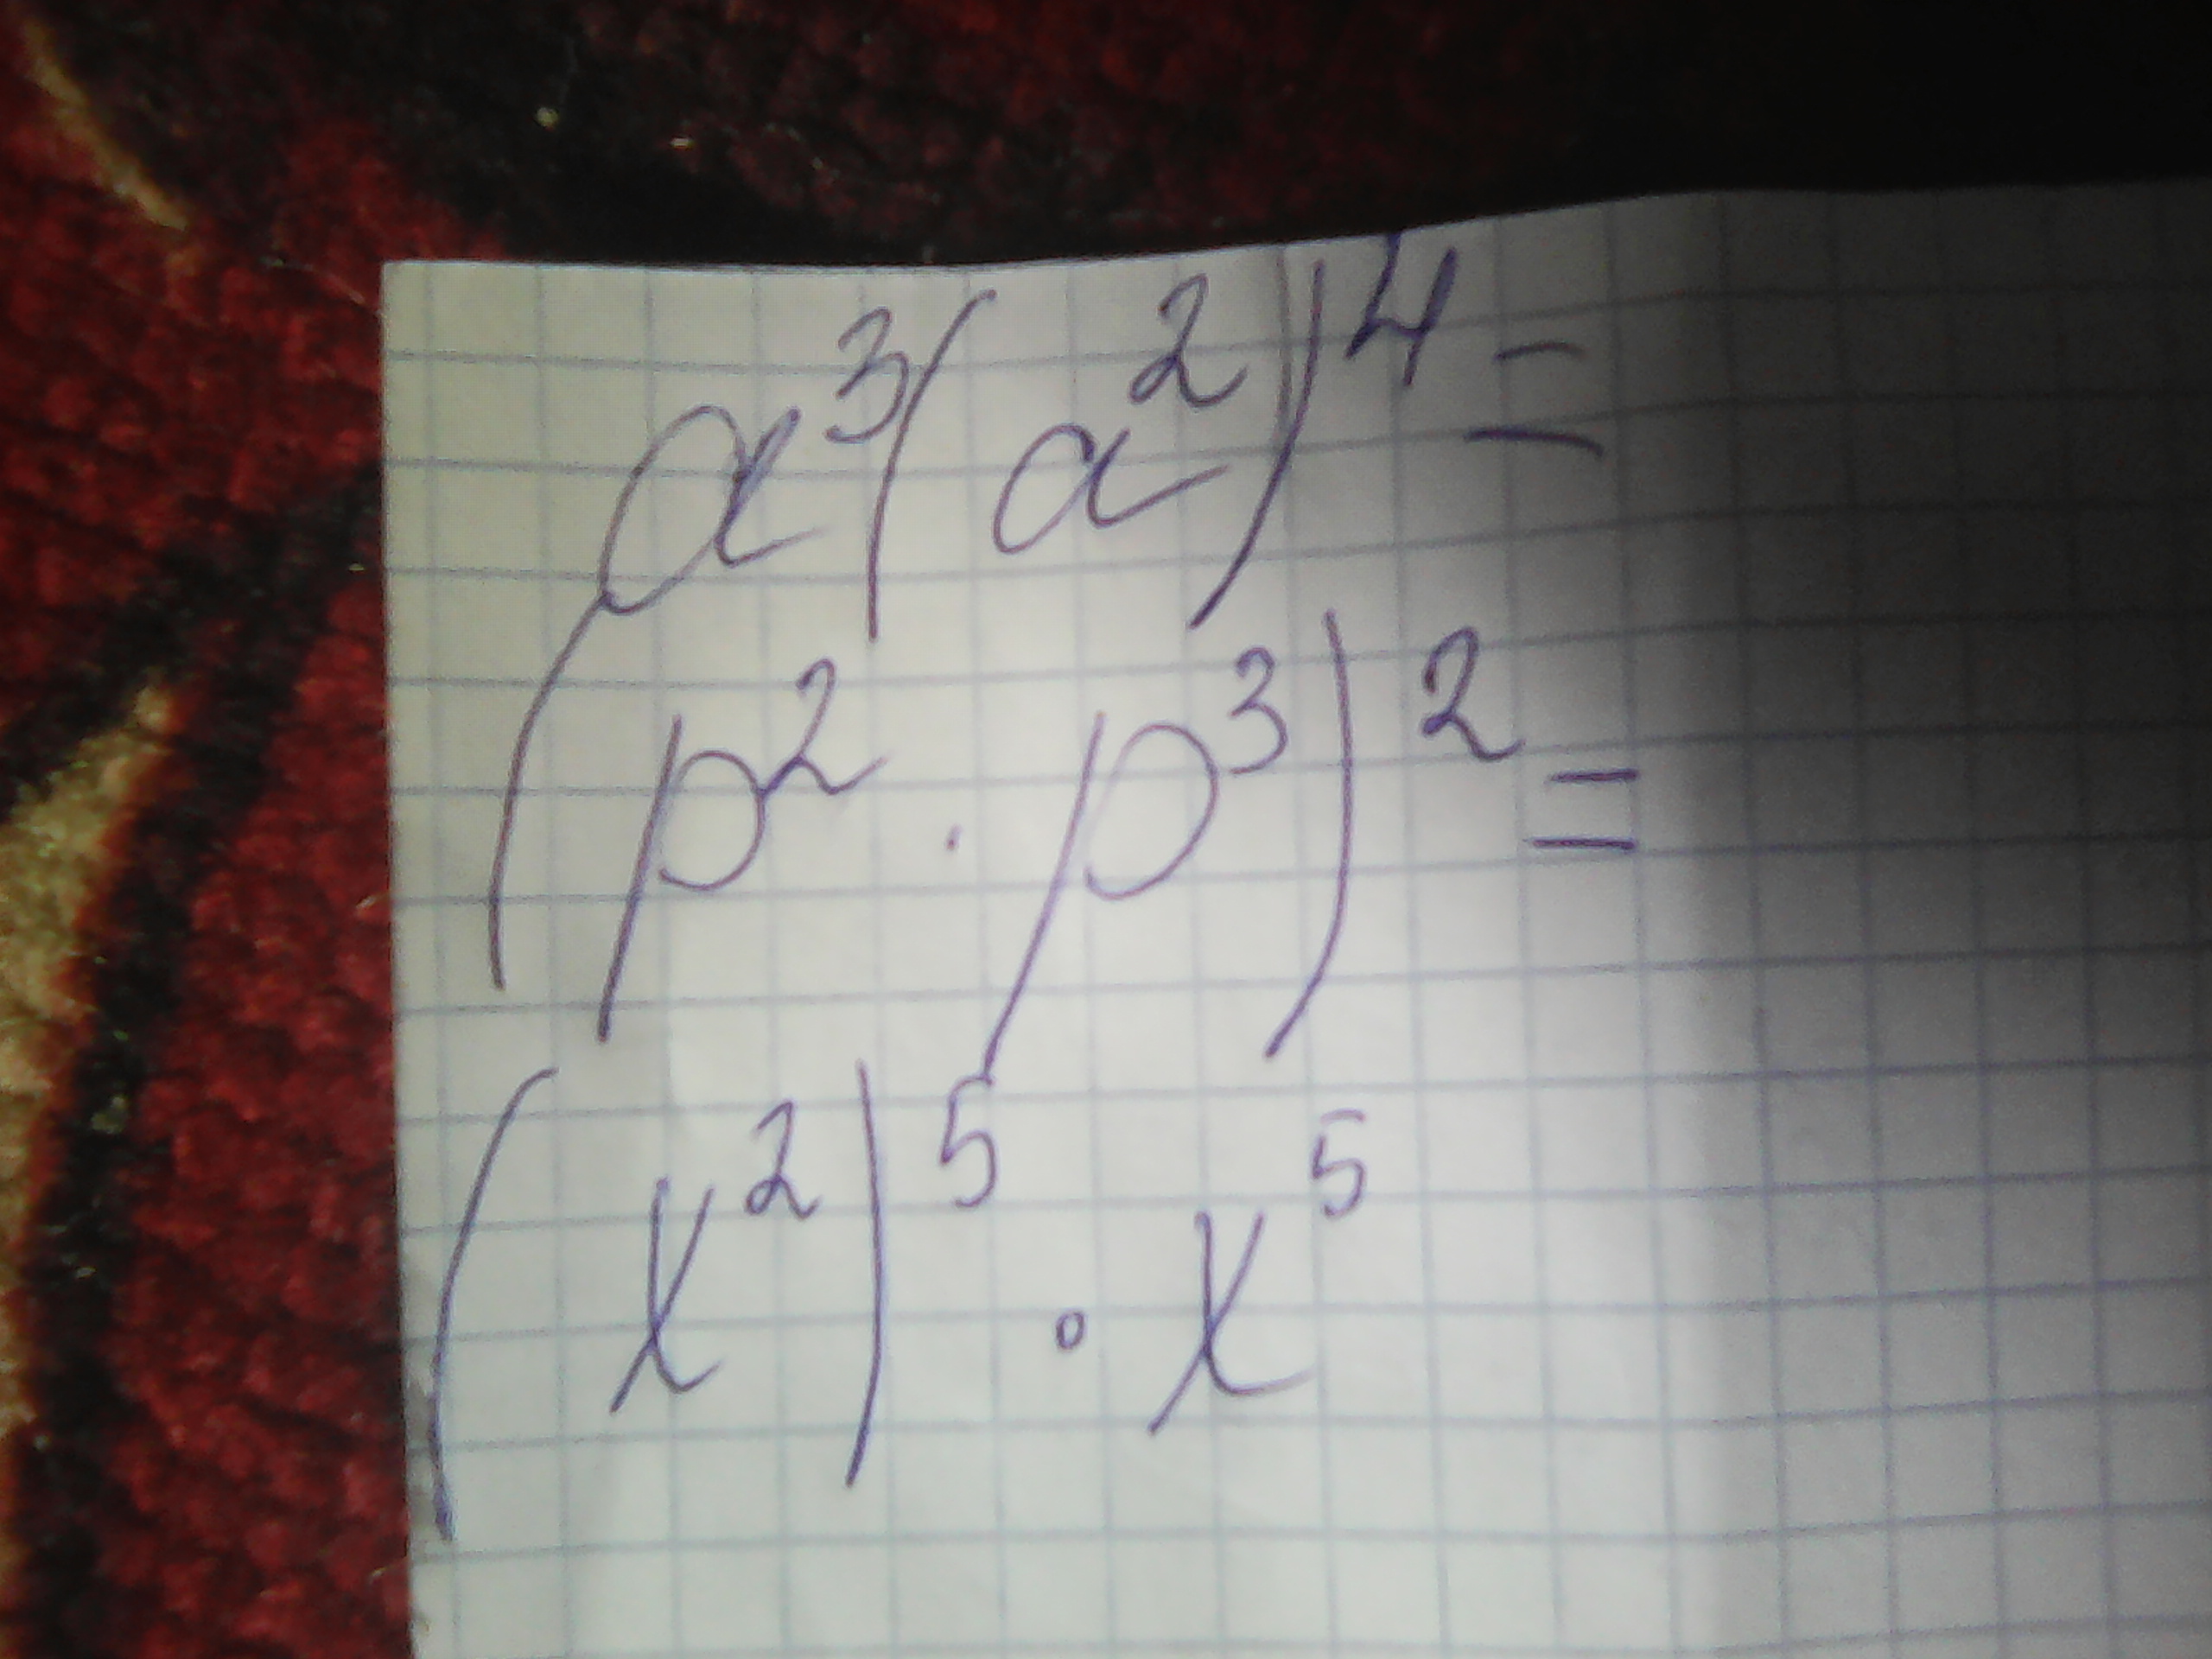 a³(a²)⁴=
(p²·p³)²=
(x²)⁵·x⁵